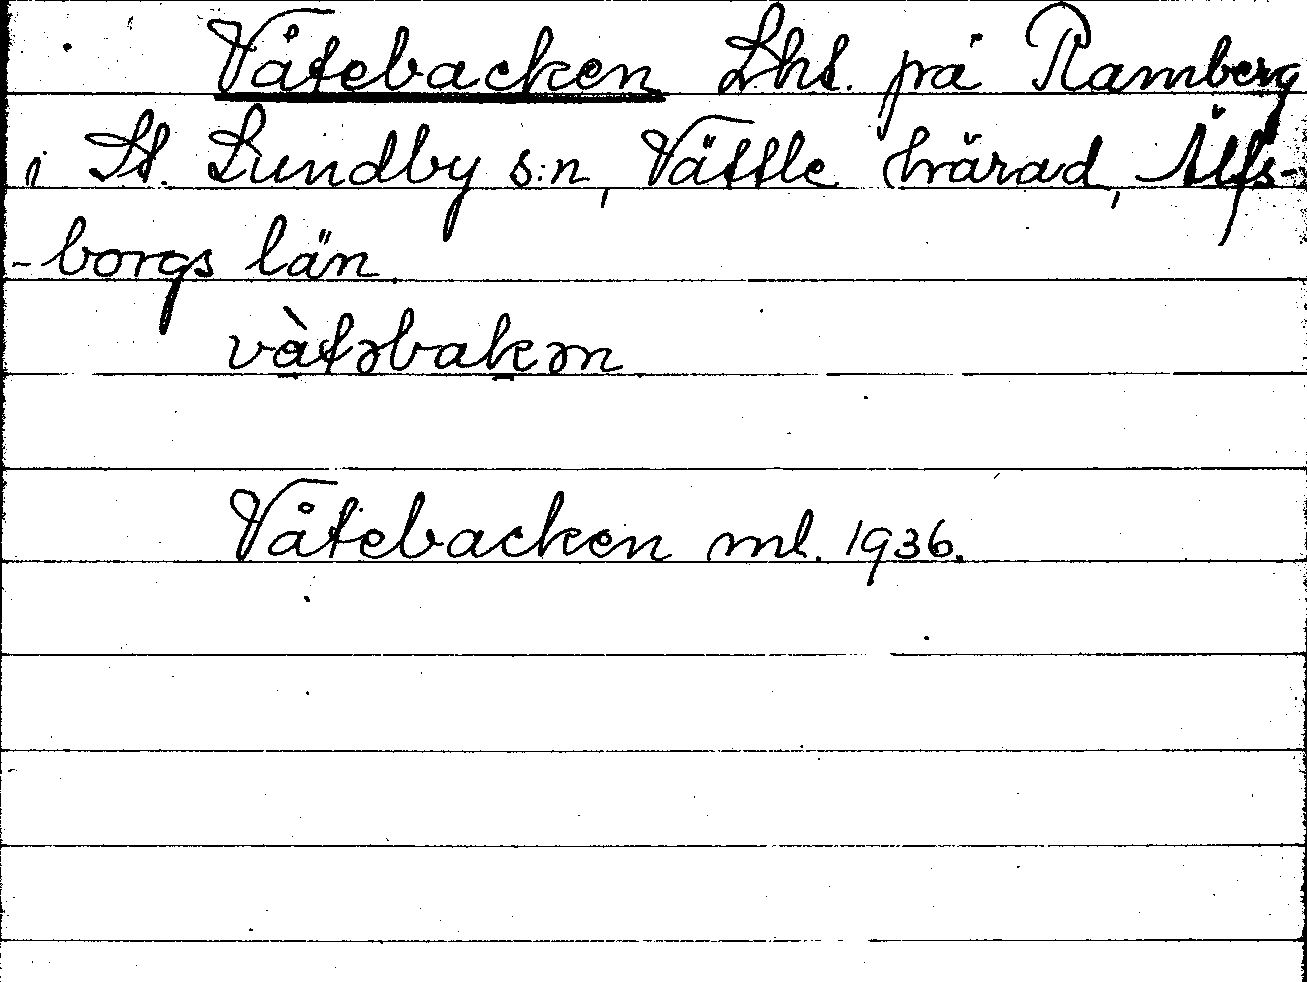 Våtebacken Lht. på Ramberg
i St. Lundby s:n, Vättle härad, Älfs-
-borgs län
vàtəbakən
Våtebacken ml. 1936.